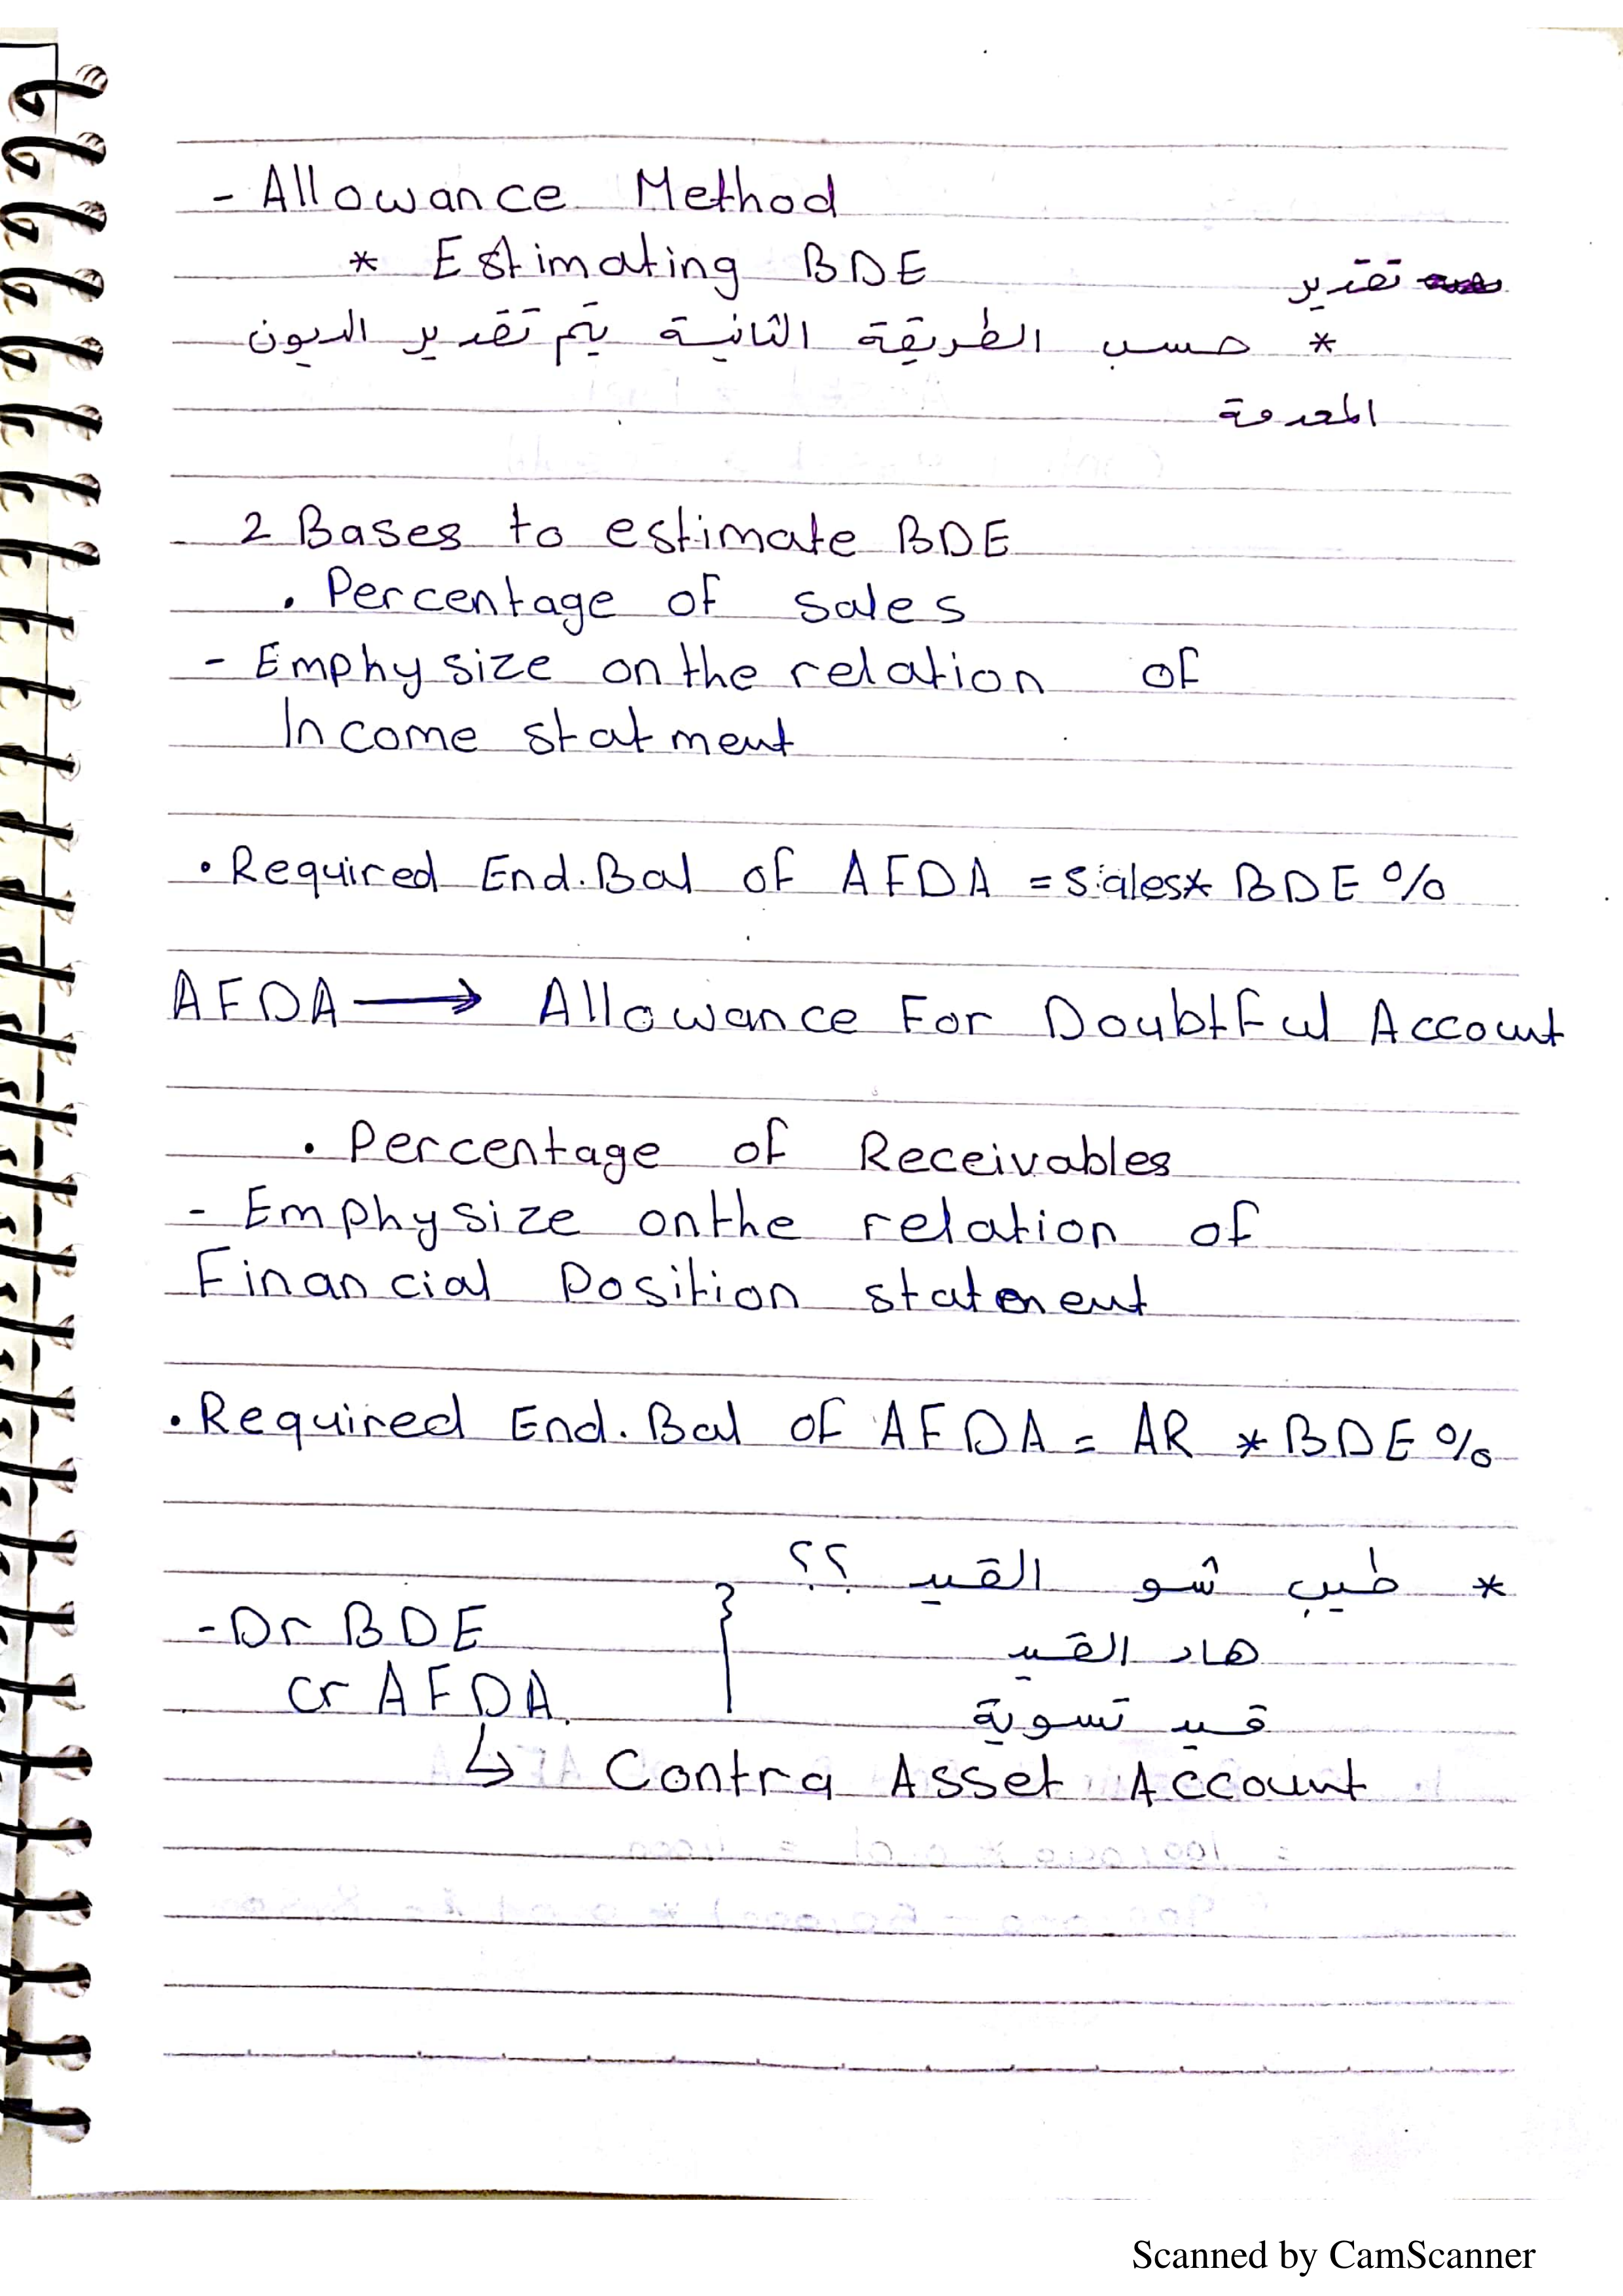 - Allowance Method
* Estimating BDE
تقدير
* حسب الطريقة الثانية يتم تقدير الديون
المعدومة
2 Bases to estimate BDE
. Percentage of sales
- Emphysize on the relation of
Income statment
• Required End.Bal of AFDA = Sales* BDE %
AFDA → Allowance For Doubtful Account
• Percentage of Receivables
- Emphysize on the relation of
Financial Position statement
• Required End. Bal of AFDA = AR * BDE %
* طيب شو القيد ؟؟
- Dr BDE
هاد القيد
cr AFDA.
قيد تسوية
↳ Contra Asset Account
Scanned by CamScanner